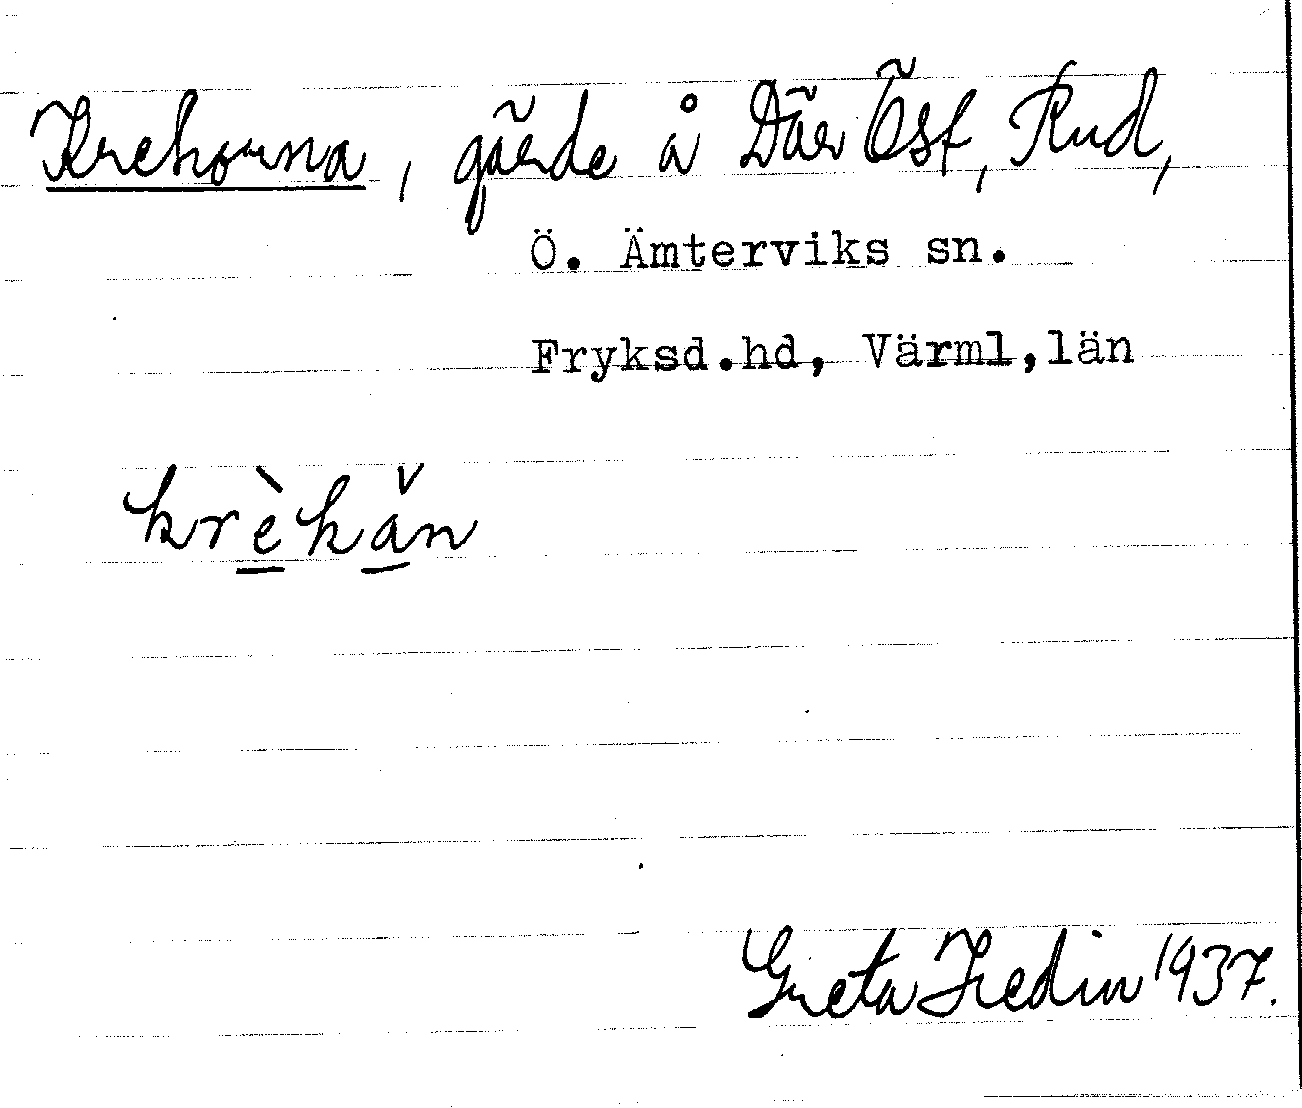 Krekorna, gärde å Där Öst, Rud,
Ö. Ämterviks sn.
Fryksd.hd, Värml,län
krèkǎn
Greta Hedin 1937.